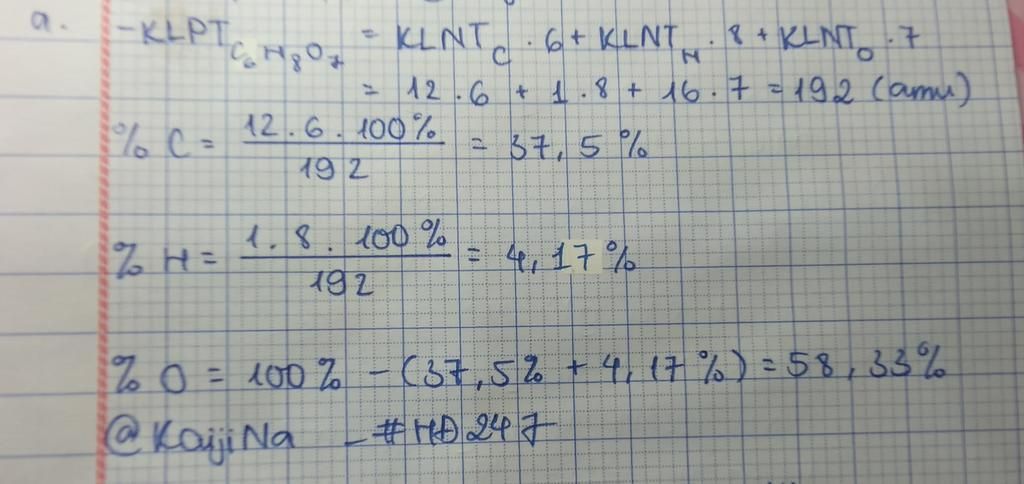 a. -KLPT C6H8O7 = KLNT C . 6 + KLNT H . 8 + KLNT O . 7
= 12 . 6 + 1 . 8 + 16 . 7 = 192 (amu)
% C = 12 . 6 . 100% / 192 = 37,5 %
% H = 1 . 8 . 100 % / 192 = 4,17 %
% O = 100% - (37,5% + 4,17 %) = 58,33%
@KaijiNa - #HĐ247